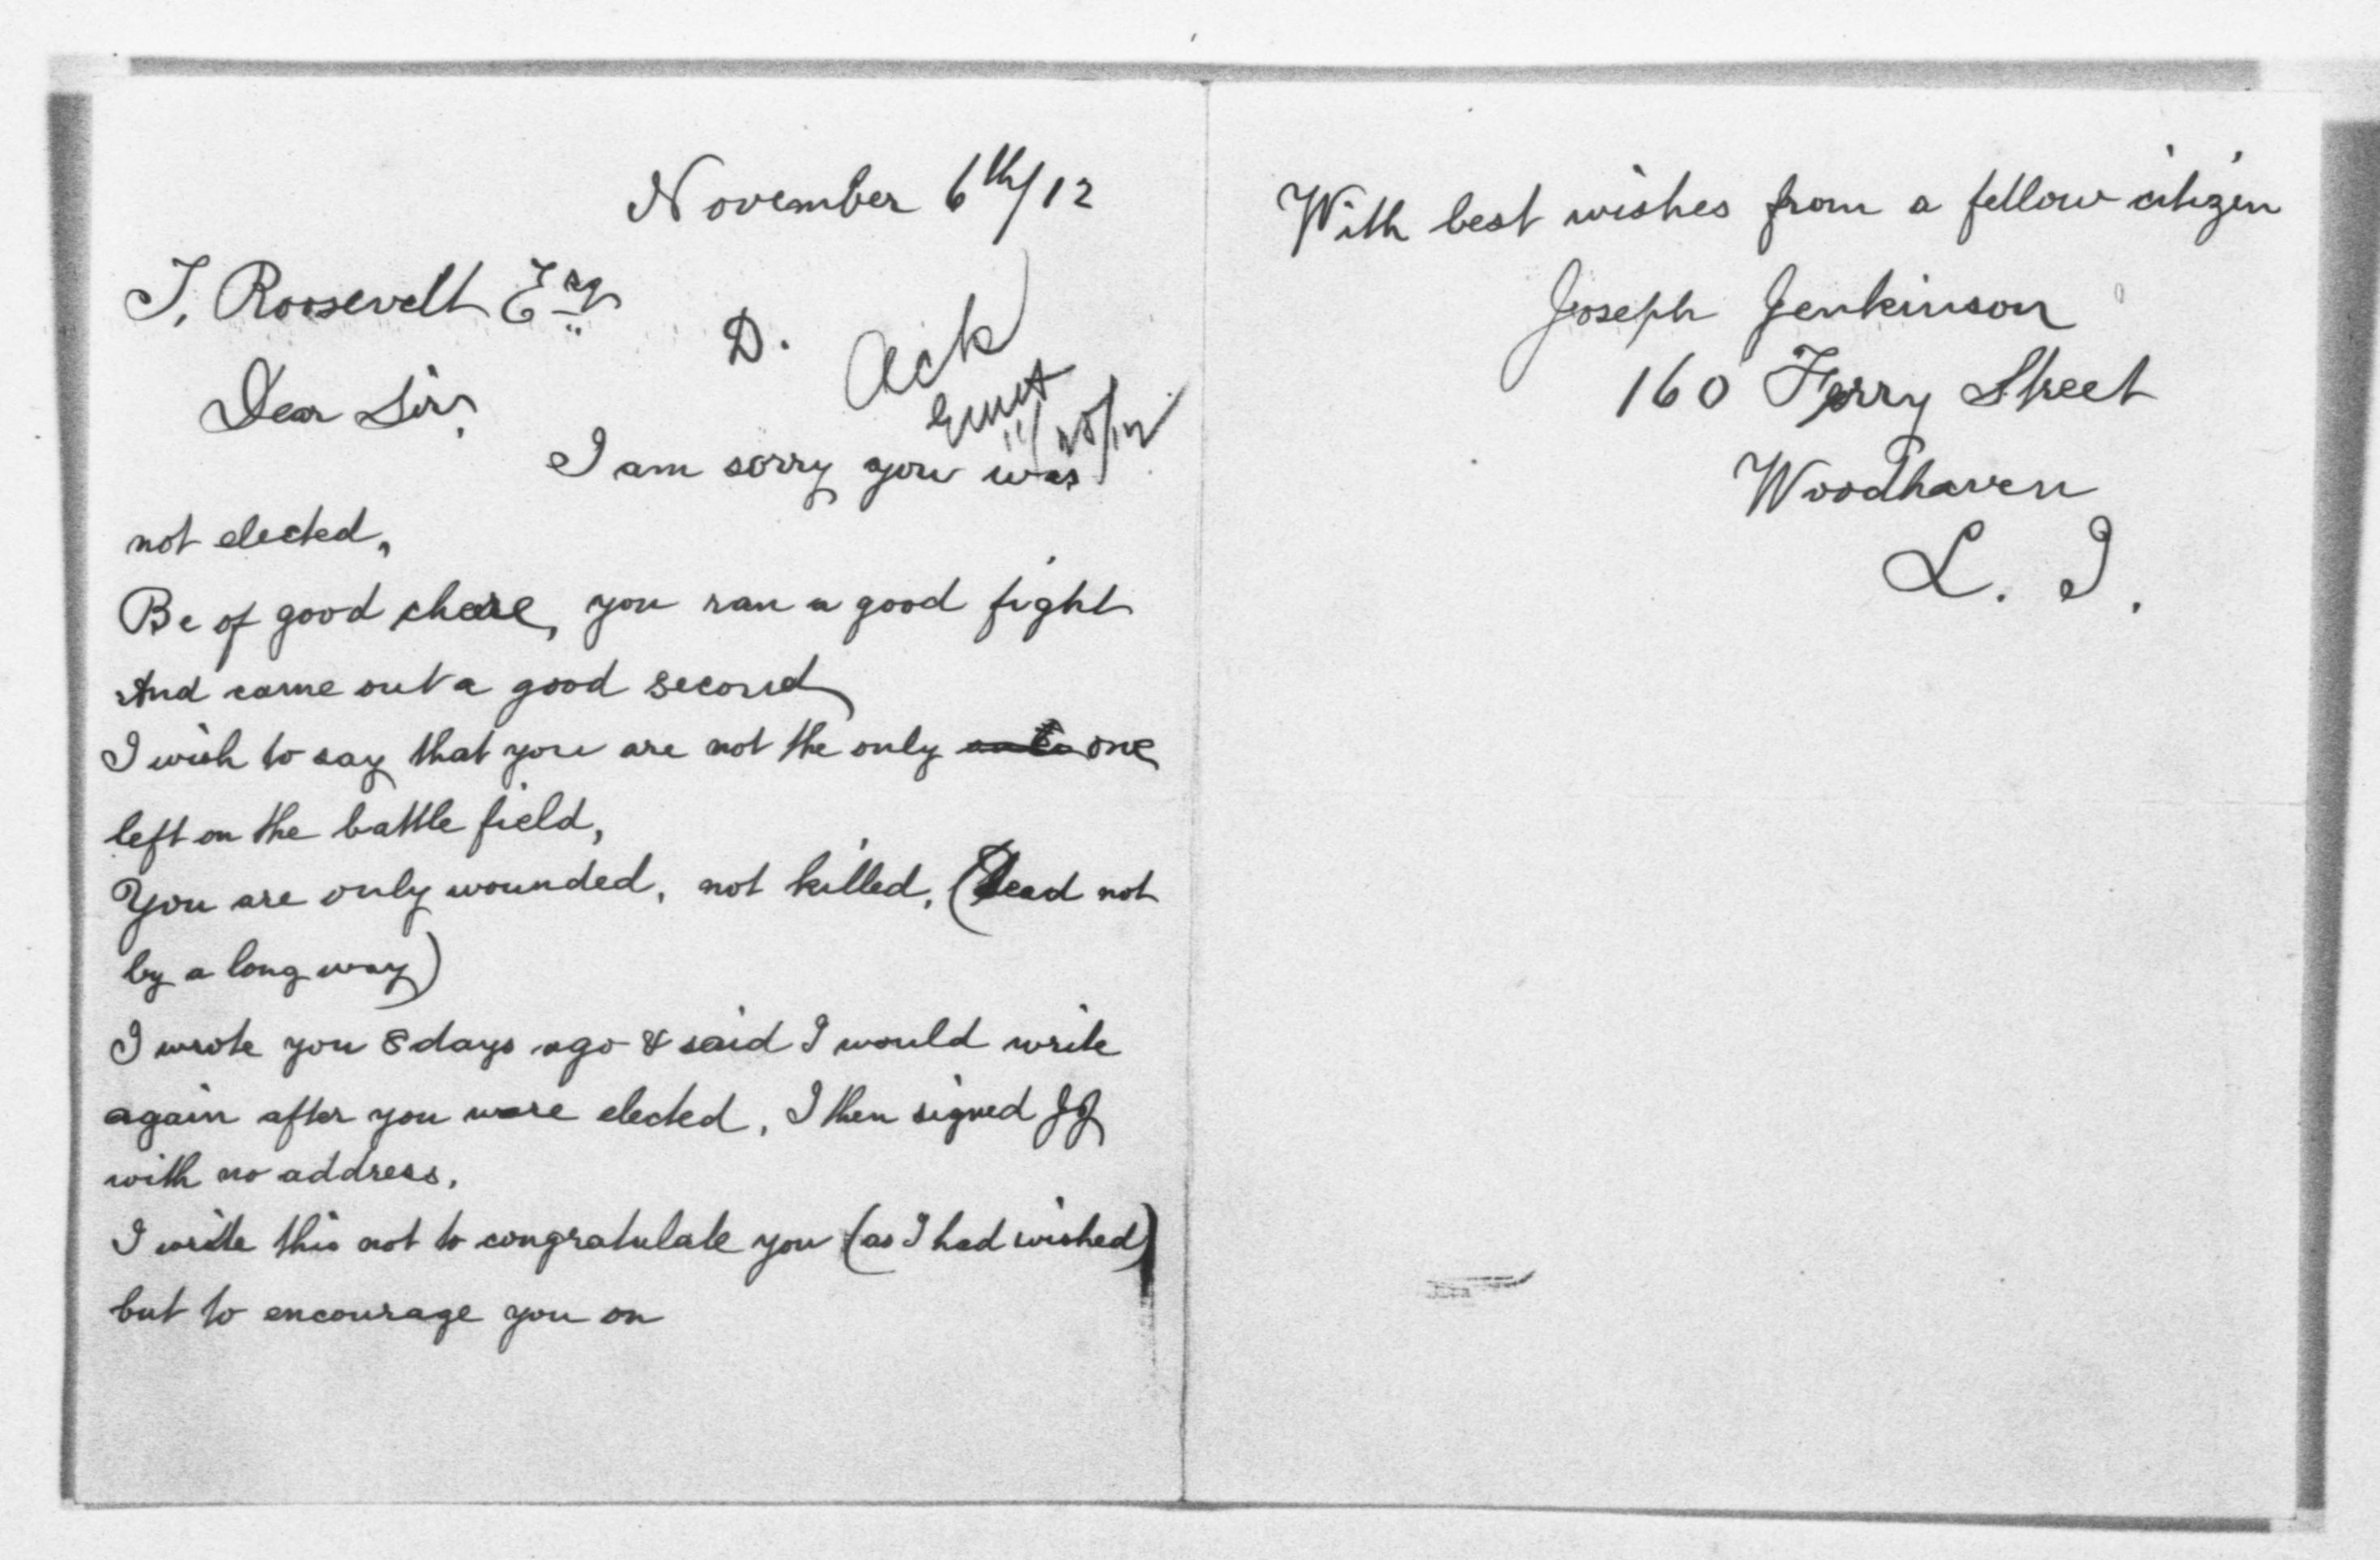 November 6th/12
T. Roosevelt Esq
D. Ack
11/25/12
Dear Sir,
I am sorry you was
not elected,
Be of good chere, you ran a good fight
And came out a good second
I wish to say that you are not the only one
left on the battle field,
You are only wounded, not killed, (Dead not
by a long way)
I wrote you 8 days ago & said I would write
again after you were elected, I then signed JJ
with no address.
I write this not to congratulate you (as I had wished)
but to encourage you on
With best wishes from a fellow citizen
Joseph Jenkinson
160 Ferry Street
Woodhaven
L. I.